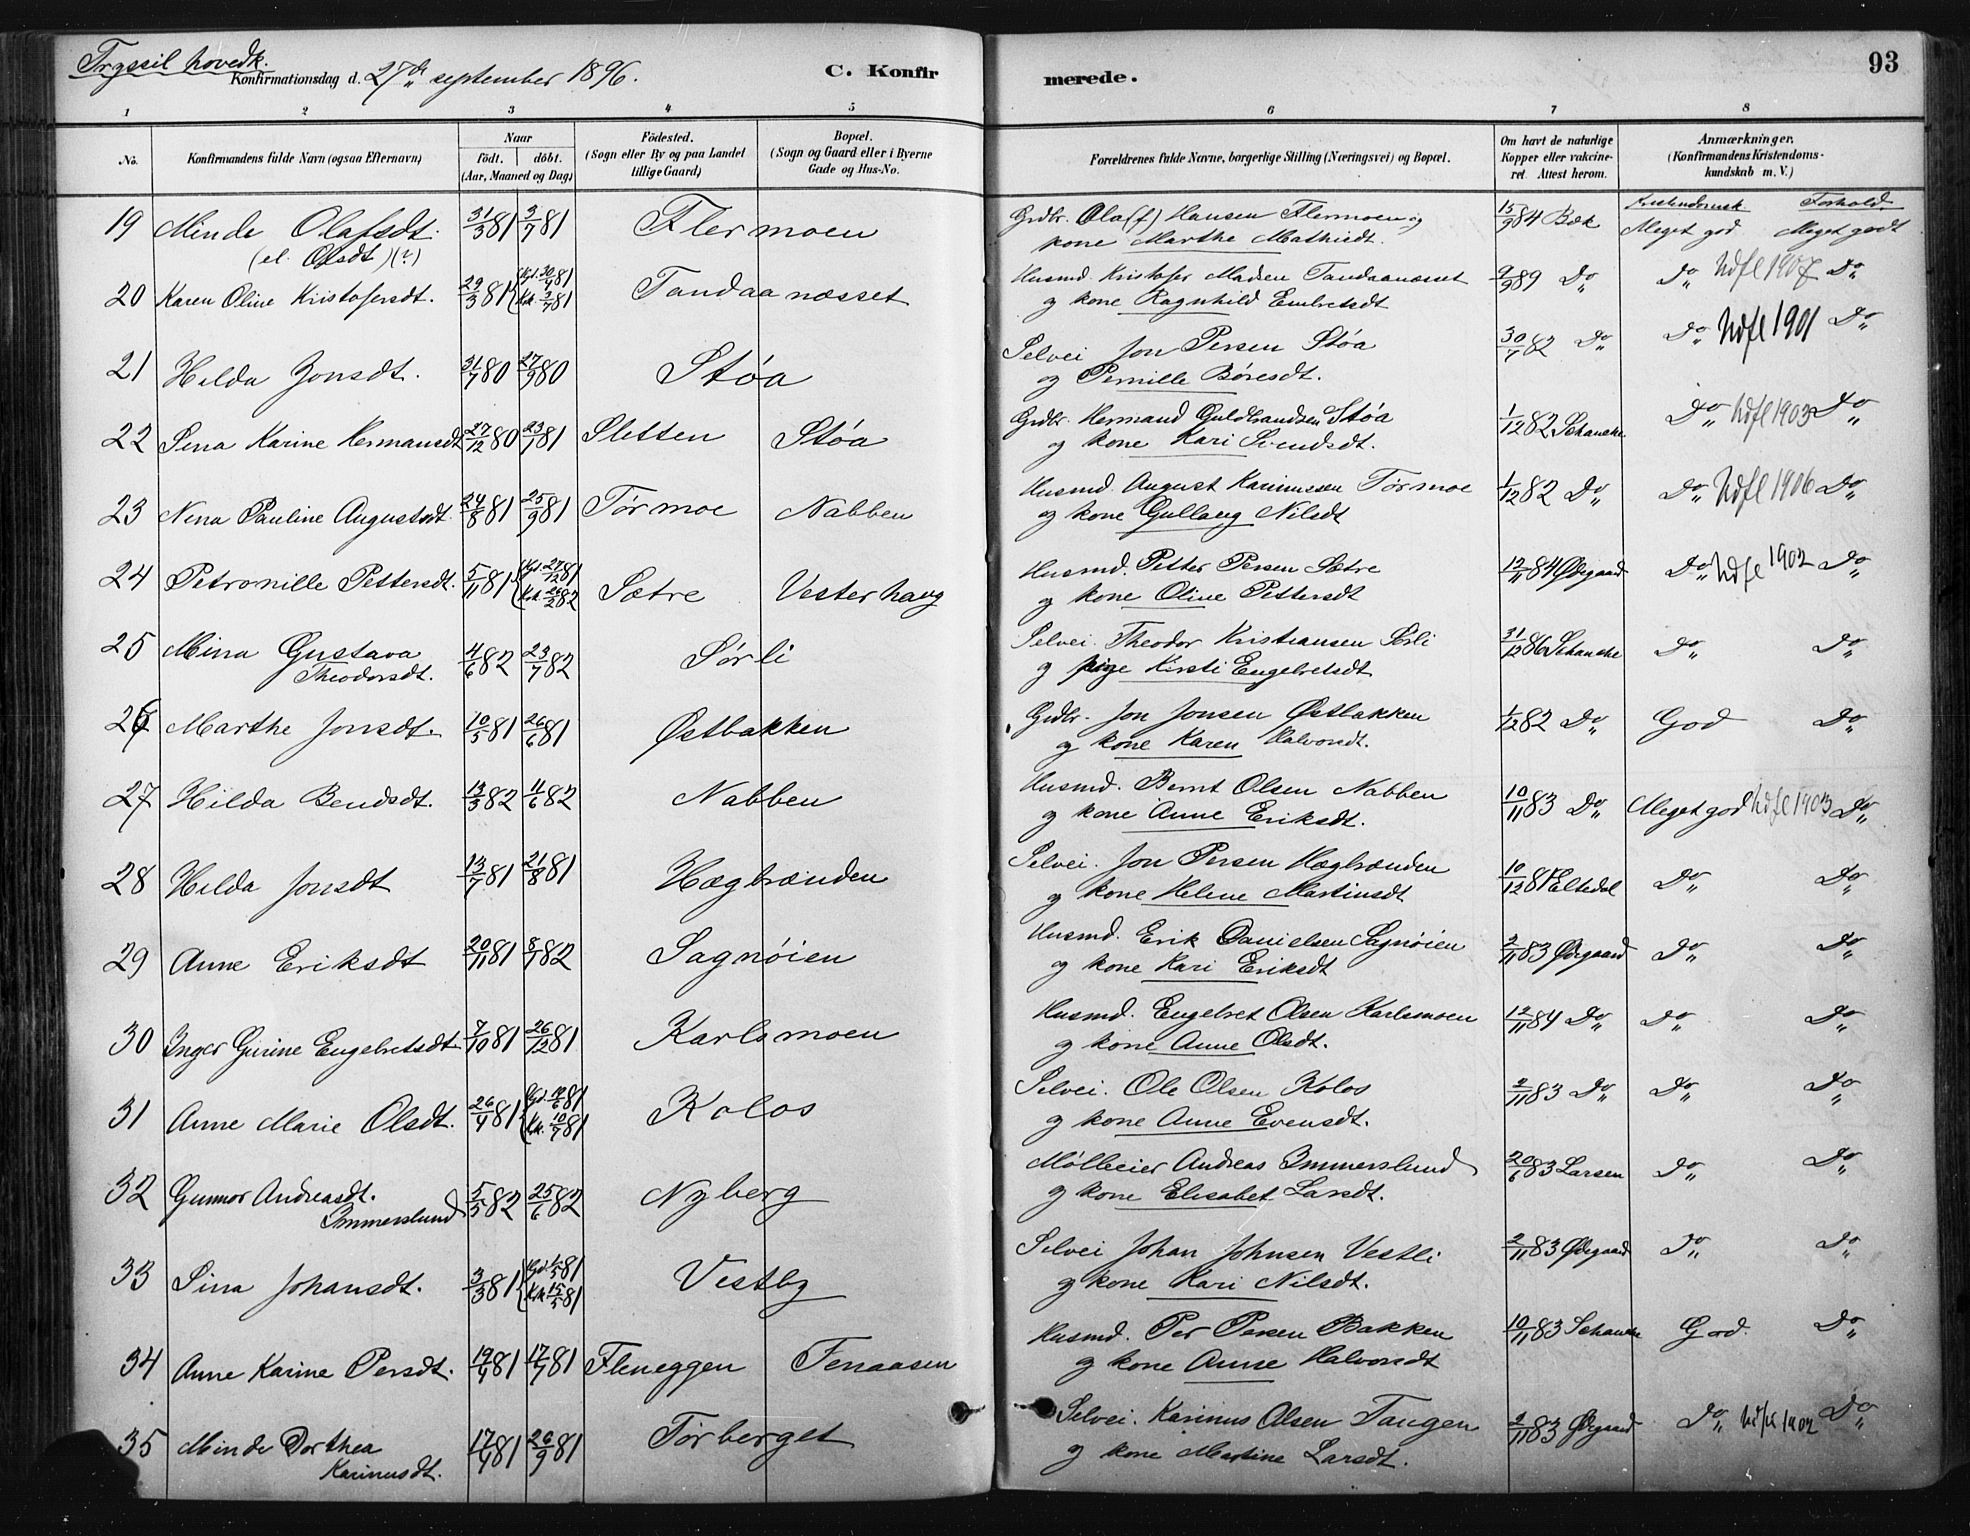 Tryssil hovedk.
Konfirmationsdag d. 27de september 1896.
C. Konfir
merede.
93
1 2 3 4 5 6 7 8
No. Konfirmandens fulde Navn (ogsaa Efternavn) Naar födt. döbt. (Aar, Maaned og Dag) Födested. (Sogn eller By og paa Landet tillige Gaard) Bopæl. (Sogn og Gaard eller i Byerne Gade og Hus-No.
Forældrenes fulde Navne, borgerlige Stilling (Næringsvei) og Bopæl. Om havt de naturlige Kopper eller vakcineret. Attest herom. Anmærkninger. (Konfirmandens Kristendomskundskab m. V.)
Kristendomsk. Forhold.
19 Minde Olafsdt. 31/3 81 3/7 81 Flermoen Grdbr. Ola(f) Hansen Flermoen og 15/9 84 Bæk Meget god Meget godt
(el. Olsdt)(?) kone Marthe Mathisdt.
20 Karen Oline Kristofersdt. 29/3 81 Tandaanæsset Husmd. Kristofer Madsen Tandaanæsset 9/9 89 Do Do Udfl 1907 Do
og kone Ragnhild Embretsdt
21 Hilda Jonsdt. 31/7 80 27/9 80 Støa Selvei Jon Persen Støa 30/7 82 Do Do Udfl 1901 Do
og Pernille Børesdt.
22 Sina Karine Hermansdt 27/12 80 23/1 81 Sletten Støa Grdbr. Hermand Guldbrandsen Støa 1/12 82 Schanche Do Udfl 1903 Do
og kone Kari Svendsdt.
23 Nena Pauline Augustsdt. 24/8 81 25/9 81 Tørmoe Nabben Husmd. August Karinusen Tørmoe 1/12 82 Do Do Udfl 1906 Do
og kone Gullaug Nilsdt
24 Petronille Pettersdt. 5/11 81 Gd. 27/12 81 Kk. 26/2 82 Sætre Vesterhaug Husmd. Petter Persen Sætre 12/11 84 Ødegaard Do Udfl 1902 Do
og kone Oline Pettersdt
25 Mina Gustava 4/6 82 23/7 82 Sørli Selvei. Theodor Kristiansen Sørli 31/12 86 Schanche Do Do
Theodorsdt. og pige Kirsti Engebretsdt
26 Marthe Jonsdt. 10/5 81 26/6 81 Østbakken Grdbr. Jon Jonsen Østbakken 1/12 82 Do God Do
og kone Karen Halvorsdt.
27 Hilda Bendsdt. 13/3 82 11/6 82 Nabben Husmd. Bernt Olsen Nabben 10/11 83 Do Meget god Udfl 1903 Do
og kone Anne Eriksdt.
28 Hilda Jonsdt 13/7 81 21/8 81 Hægbrænden Selvei. Jon Persen Hægbrænden 10/12 81 Eltedal Do Do
og kone Helene Martinsdt
29 Anne Eriksdt 20/11 81 8/1 82 Sagnøien Husmd. Erik Danielsen Sagnøien 2/11 83 Ødegaard Do Do
og kone Kari Eriksdt
30 Inger Gurine Engebretsdt 7/10 81 26/12 81 Karlsmoen Husmd. Engebret Olsen Karlsmoen 12/11 84 Do Do Do
og kone Anne Olsdt.
31 Anne Marie Olsdt. 26/4 81 Kk. 10/7 81 Kolos Selvei. Ole Olsen Kolos 2/11 83 Do Do Do
og kone Anne Evensdt.
32 Gunnor Andreasdt. 5/5 82 25/6 82 Nyberg Mølleeier Andreas Immerslund 20/6 83 Larsen Do Do
Immerslund og kone Elisabet Larsdt.
33 Sina Johansdt. 3/3 81 Gd. 1/5 81 Kk 15/5 81 Vestby Selvei Johan Johnsen Vestli 2/11 83 Ødegaard Do Do
og kone Kari Nilsdt.
34 Anne Karine Persdt. 19/4 81 17/7 81 Fleneggen Tenaasen Husmd. Per Persen Bakken 10/11 83 Schanche God. Do
og kone Anne Halvorsdt
35 Minde Dorthea 17/4 81 26/9 81 Tørberget Selvei. Karinus Olsen Tangen 2/11 83 Ødegaard Do Udfl 1902 Do
Karinusdt. og kone Martine Larsdt.